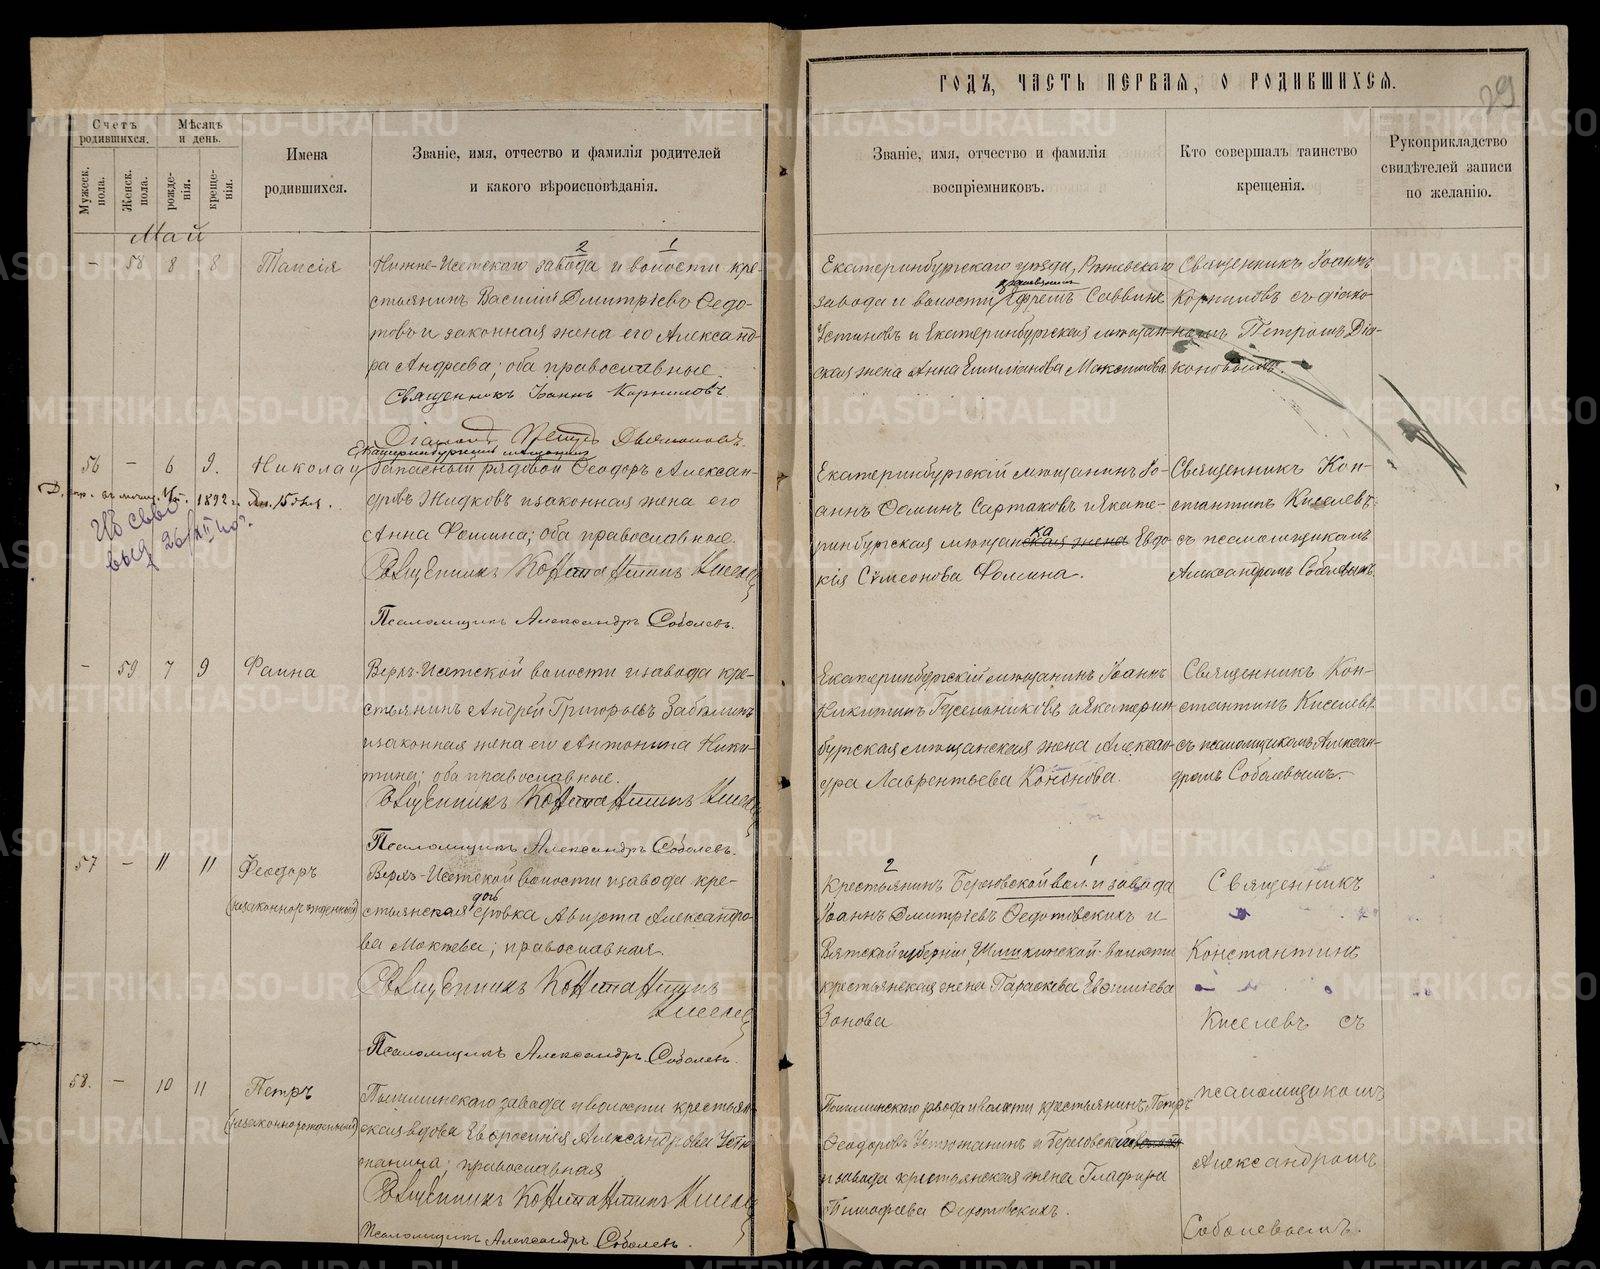 ГОДЪ, ЧАСТЬ ПЕРВАЯ, О РОДИВШИХСЯ.
29
Счетъ родившихся.
Мужеск. пола.
Женск. пола.
Мѣсяцъ и день.
рожденія.
крещенія.
Имена
родившихся.
Званіе, имя, отчество и фамилія родителей
и какого вѣроисповѣданія.
Званіе, имя, отчество и фамилія
воспріемниковъ.
Кто совершалъ таинство
крещенія.
Рукоприкладство
свидѣтелей записи
по желанію.
Май
- 58 8 8 Таисія
2 1
Нижне-Исетскаго завода и волости кре-
стьянинъ Василій Дмитріевъ Ѳедо-
товъ и законная жена его Александ-
ра Андреева; оба православные.
Священникъ Іоаннъ Корниловъ
Екатеринбургскаго уѣзда,
завода и волости Ефремъ Саввинъ
Устиновъ и Екатеринбургская мѣщан-
ская жена Анна Емиліанова Максимова
Священникъ Іоаннъ
Корниловъ съ діако-
номъ Петромъ Діа-
коновымъ.
56 - 6 9. Николай
1892 г. 15 дня.
Екатеринбургскій мѣщанинъ
Запасный рядовой Ѳеодоръ Алексан-
дровъ Жидковъ и законная жена его
Анна Ѳомина; оба православные.
Священникъ Константинъ Киселевъ
Псаломщикъ Александръ Соболевъ.
Екатеринбургскій мѣщанинъ Іо-
аннъ Ѳоминъ Сартаковъ и Екате-
ринбургская мѣщанская жена Евдо-
ка
кія Сѵмеонова Ѳомина.
Священникъ Кон-
стантинъ Киселевъ
съ псаломщикомъ
Александромъ Соболевымъ.
- 59 7 9 Фаина
Верхъ-Исетской волости и завода кре-
стьянинъ Андрей Григорьевъ Забѣлинъ
и законная жена его Антонина Ники-
тина; оба православные.
Священникъ Константинъ Киселевъ
Псаломщикъ Александръ Соболевъ.
Екатеринбургскій мѣщанинъ Іоаннъ
Никитинъ Гусельниковъ и Екатерин-
бургская мѣщанская жена Алексан-
дра Лаврентьева Кононова.
Священникъ Кон-
стантинъ Киселевъ
съ псаломщикомъ Алексан-
дромъ Соболевымъ.
57 - 11 11 Ѳеодоръ
(незаконнорожденный)
Верхъ-Исетской волости и завода кре-
стьянская дѣвка Августа Александро-
ва Мокѣева; православная
Священникъ Константинъ
Киселевъ
Псаломщикъ Александръ Соболевъ.
2 1
Крестьянинъ Березовской вол. и завода
Іоаннъ Дмитріевъ Ѳедотовскихъ и
Вятской губерніи, волости
крестьянская жена Параскева Евѳиміева
Зонова
Священникъ
Константинъ
Киселевъ съ
псаломщикомъ
Александромъ
Соболевымъ.
58. - 10 11 Петръ
(незаконнорожденный)
Пышминскаго завода и волости крестьян-
ская вдова Евфросинія Александрова Устю-
жанина; православная
Священникъ Константинъ Киселевъ
Псаломщикъ Александръ Соболевъ.
Пышминскаго завода и волости крестьянинъ Петръ
Ѳеодоровъ Устюжанинъ и Березовской волости
и завода крестьянская жена Глафира
Тимофеева Ѳедотовскихъ.
METRIKI.GASO-URAL.RU